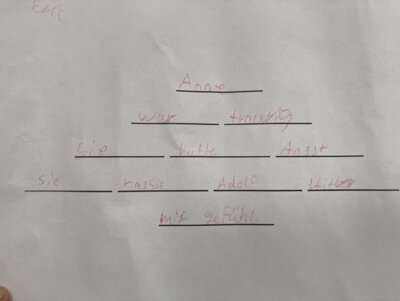 Anne
war traurig
Sie hatte Angst
sie hasste Adolf Hitler
mit gefühl